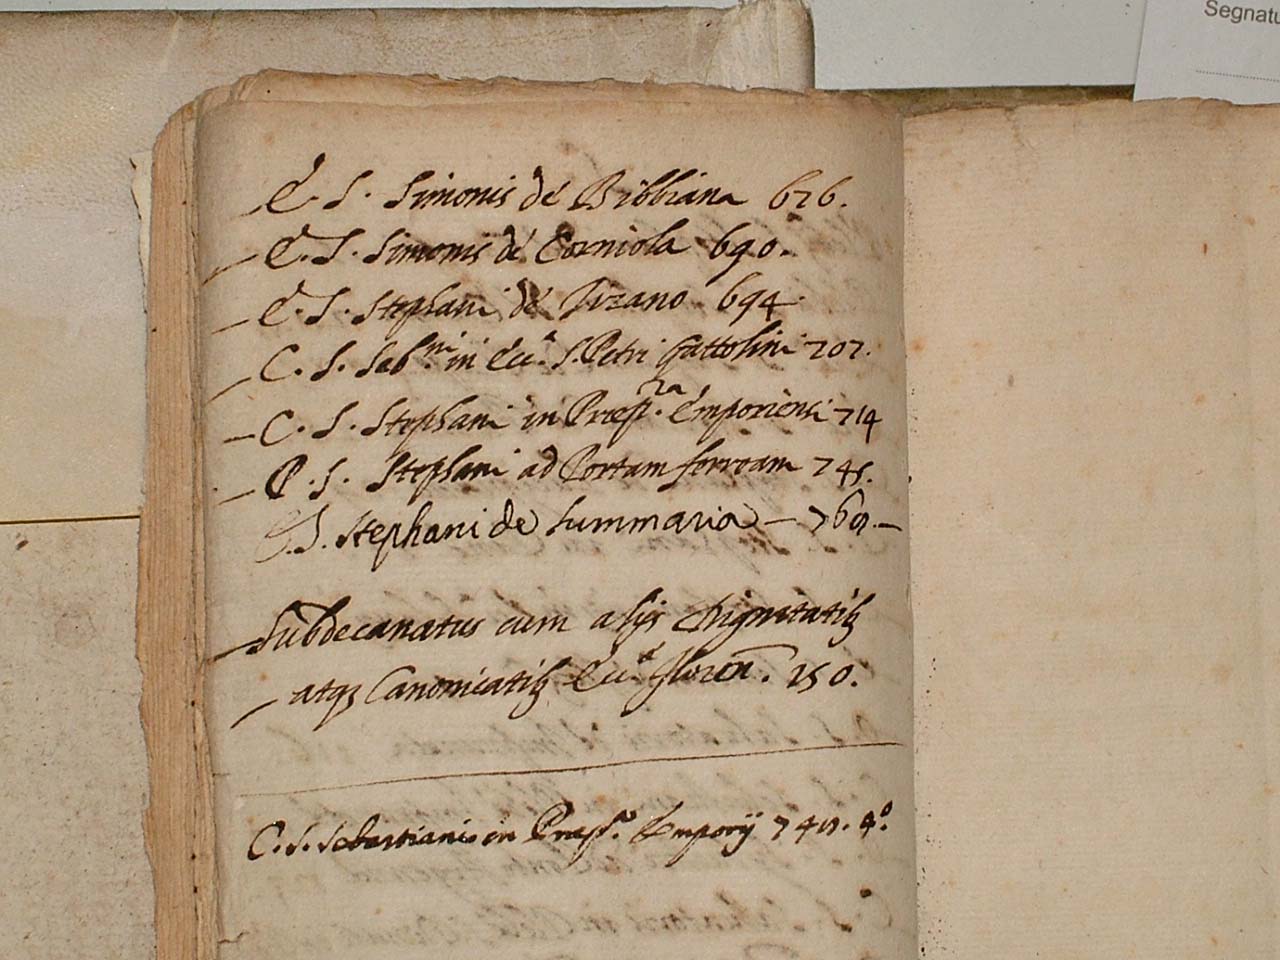 Segnatu
E. S. Simonis de Bibbiana 676.
E. S. Simonis de Corniola 690.
E. S. Stephani de 694.
C. S. Seb.ni in Ecc.a S. Petri Gattolini 707.
C. S. Stephani in Præp.ra Emporiensi 714
P. S. Stephani ad Portam ferream
S. Stephani de Summaria —
Subdecanatus cum alijs Dignitatib9
atq3 Canonicatib9 Ecc.æ Floren. 150.
C. S. Sebastiani in Emporij